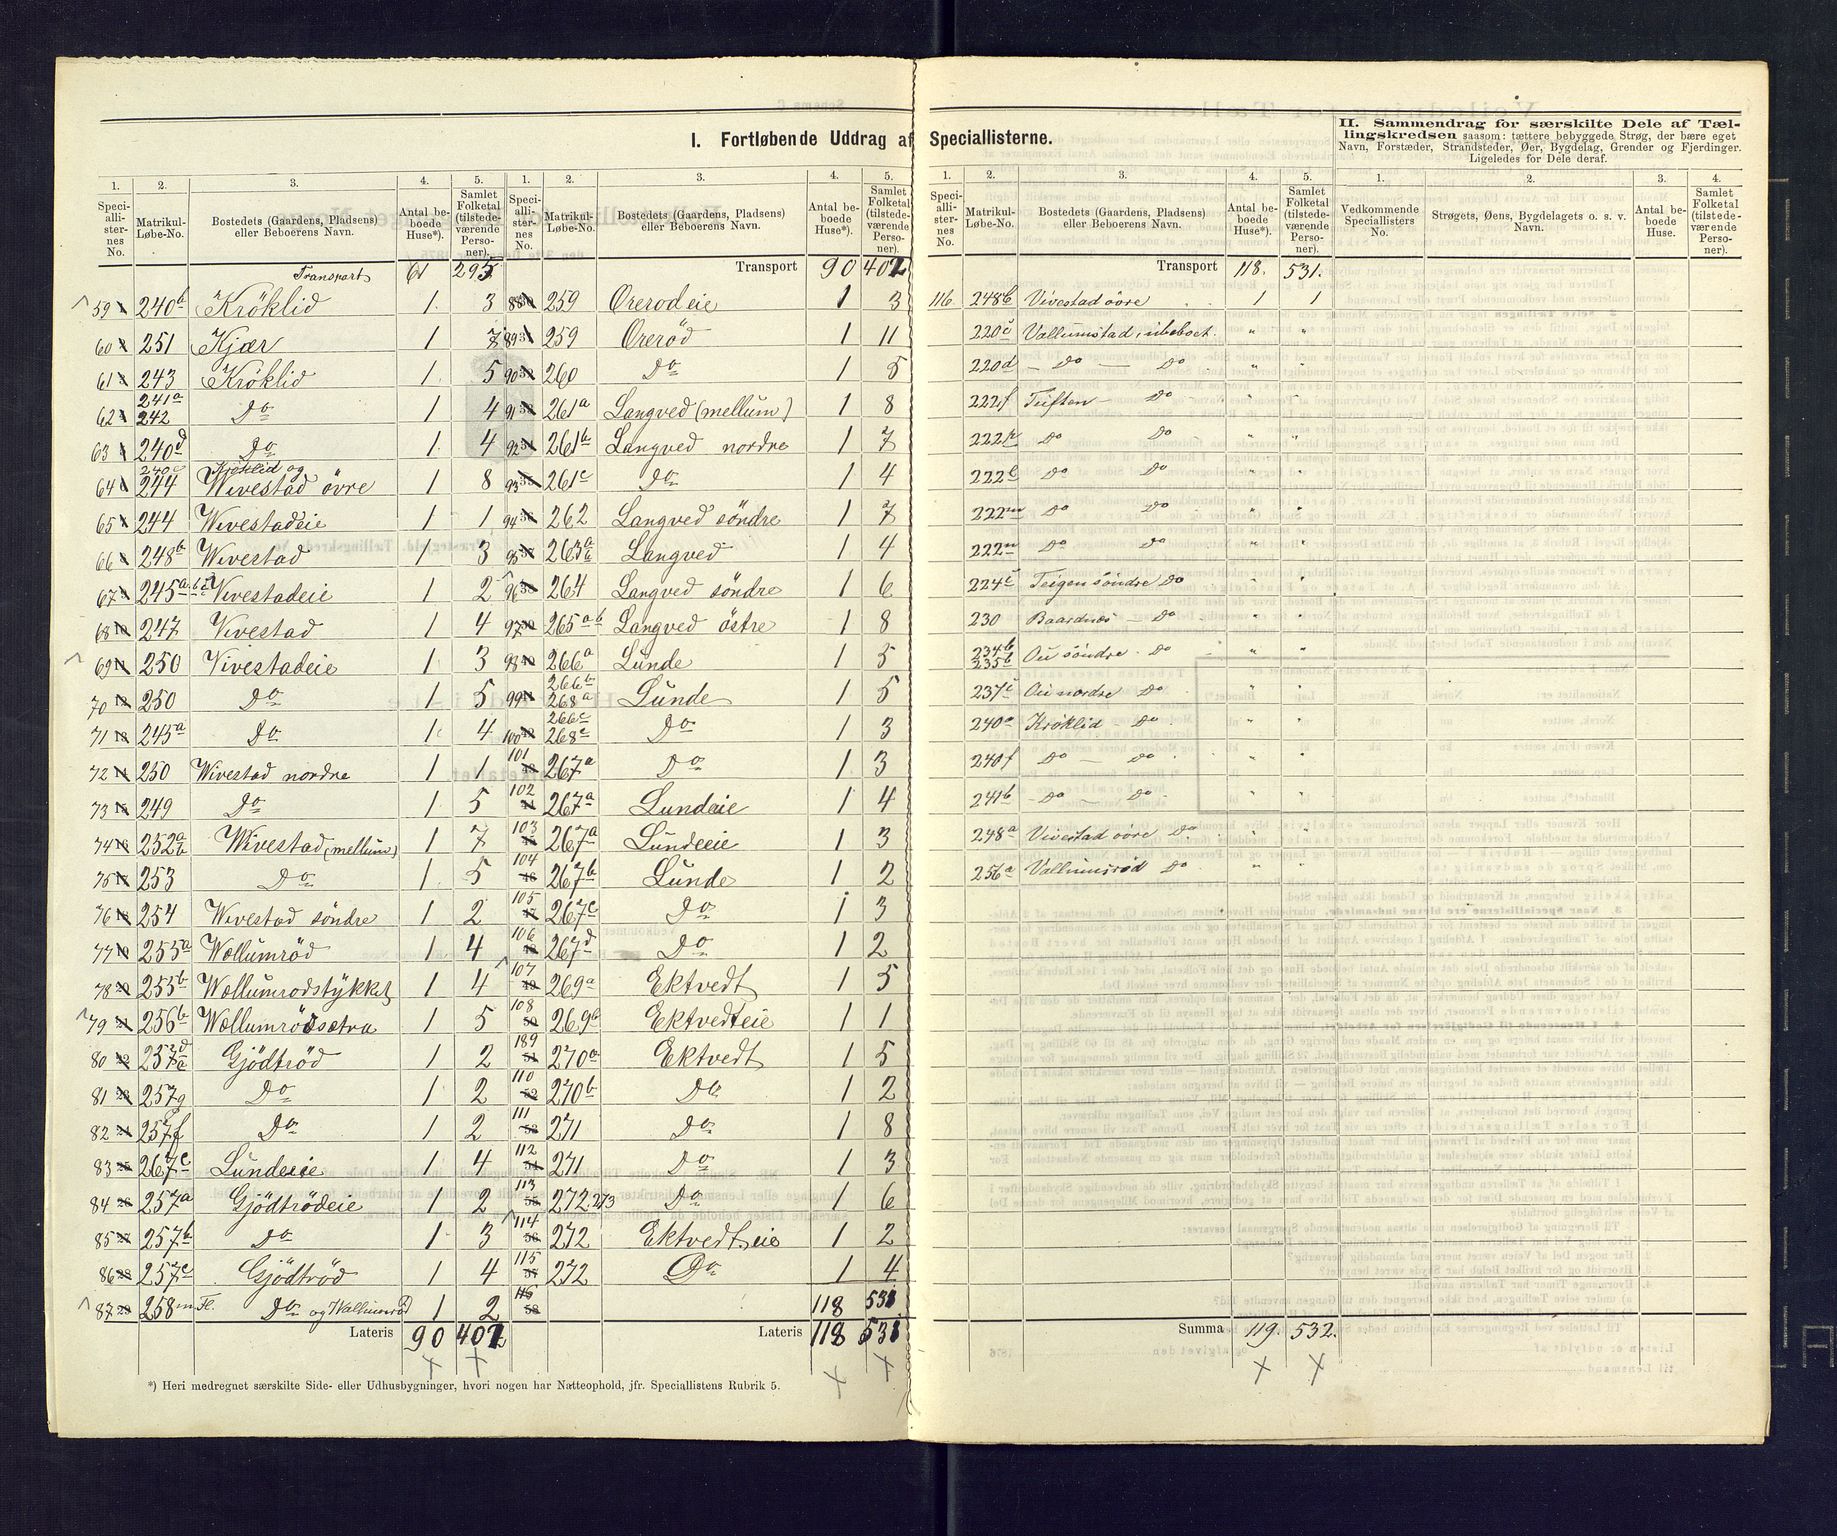 I. Fortløbende Uddrag af Speciallisterne.
1. 2. 3. 4. 5.
Speciallisternes No. Matrikul-Løbe-No. Bostedets (Gaardens, Pladsens) eller Beboerens Navn. Antal beboede Huse*). Samlet Folketal (tilstedeværende Personer).
Transport 61 295
59 240b Kröklid 1 3
60 251 Kjær 1 7
61 243 Kröklid 1 5
62 241a 242 Do 1 4
63 240d Do 1 4
64 240c 244 Kröklid og Wivestad övre 1 8
65 244 Wivestadeie 1 1
66 248b Wivestad 1 3
67 245a Vivestadeie 1 2
68 247 Vivestad 1 4
69 250 Vivestadeie 1 3
70 250 Do 1 5
71 245a Do 1 4
72 250 Wivestad nordre 1 1
73 249 Do 1 5
74 252a b Wivestad (mellum) 1 7
75 253 Do 1 5
76 254 Wivestad söndre 1 2
77 255a Wællumröd 1 4
78 255b Wællumrodstykket 1 4
79 256b Wællumrödsætra 1 5
80 257d a Gjödtröd 1 2
81 257g Do 1 2
82 257f Do 1 2
83 267c Lundeeie 1 4
84 257a Gjödtrödeie 1 2
85 257b Do 1 3
86 257c Gjödtröd 1 4
87 258 Do og Wallumröd 1 2
Lateris 90 402
*) Heri medregnet særskilte Side- eller Udhusbygninger, hvori nogen har Natteophold, jfr. Speciallistens Rubrik 5.
1. 2. 3. 4. 5.
Speciallisternes No. Matrikul-Løbe-No. Bostedets (Gaardens, Pladsens) eller Beboerens Navn. Antal beboede Huse*). Samlet Folketal (tilstedeværende Personer).
Transport 90 402
88 259 Orerodeie 1 3
89 259 Oreröd 1 11
90 260 Do 1 5
91 261a Langved (mellum) 1 8
92 261b Langved nordre 1 7
93 261c Do 1 4
94 262 Langved söndre 1 7
95 263a Langved 1 4
96 264 Langved söndre 1 6
97 265a b Langved östre 1 8
98 266a Lunde 1 5
99 266b 268a Lunde 1 5
100 266c 268c Do 1 3
101 267a Do 1 3
102 267a Lundeie 1 4
103 267a Lundeeie 1 3
104 267b Lunde 1 2
105 267c Do 1 3
106 267d Do 1 2
107 269a Ektvedt 1 5
108 269b Ektvedteie 1 1
189 270a Ektvedt 1 5
110 270b Do 1 2
111 271 Do 1 8
112 271 Do 1 3
113 272 273 Do 1 6
114 272 Ektvedteie 1 2
115 272 Do 1 4
116 118 531
Lateris 118 531
1. 2. 3. 4. 5.
Speciallisternes No. Matrikul-Løbe-No. Bostedets (Gaardens, Pladsens) eller Beboerens Navn. Antal beboede Huse*). Samlet Folketal (tilstedeværende Personer).
Transport 118. 531.
116. 248b Vivestad övre 1 1
220c Vallumstad, ubeboet. " "
220d — Do — Do " "
222f Tuften — Do " "
222k Do Do " "
222l Do Do " "
222m Do Do " "
222n Do Do " "
224c Teigen söndre Do " "
230 Baardnæs — Do " "
234b 235b Öu söndre. Do " "
237c Öu nordre Do " "
240a Krøklid — Do " "
240f Do — Do. " "
241b — Do — Do. " "
248a Vivestad övre Do " "
256a Vallumsröd Do " "
Summa 119. 532.
II. Sammendrag for særskilte Dele af Tællingskredsen saasom: tættere bebyggede Strøg, der bære eget Navn, Forstæder, Strandsteder, Øer, Bygdelag, Grender og Fjerdinger. Ligeledes for Dele deraf.
1. 2. 3. 4.
Vedkommende Speciallisters No. Strøgets, Øens, Bygdelagets o. s. v. Navn. Antal beboede Huse. Samlet Folketal (tilstedeværende Personer).